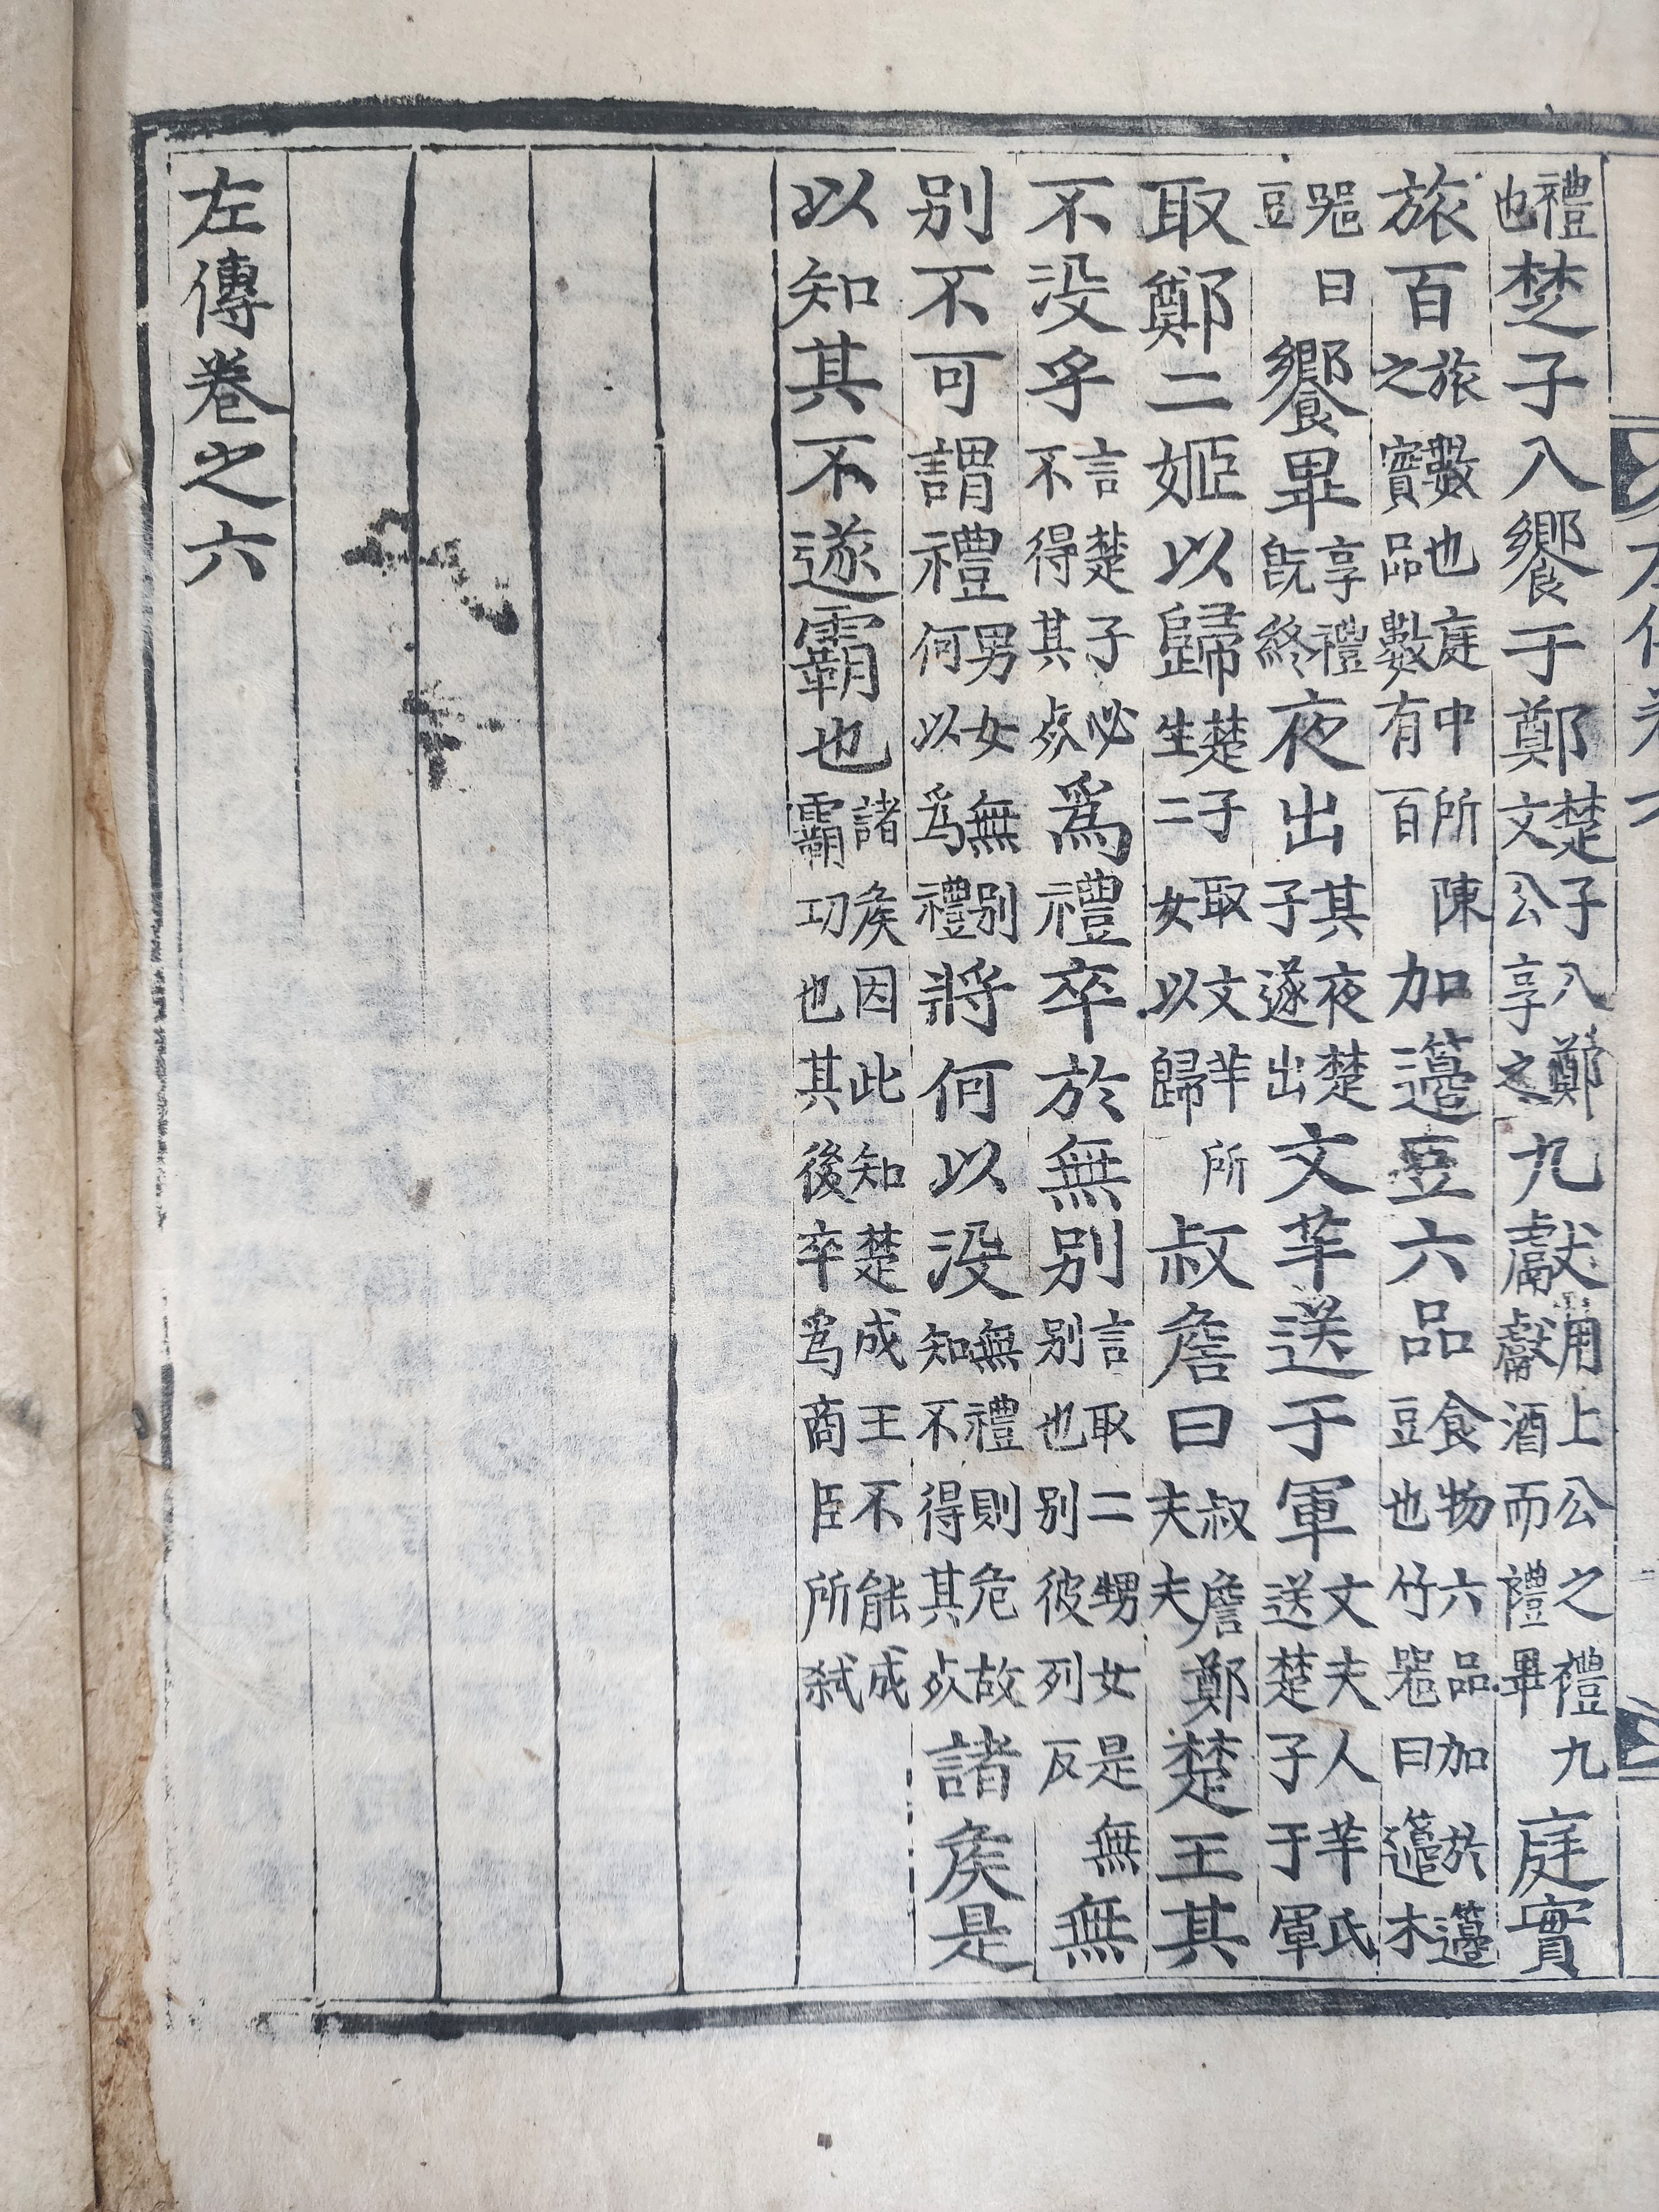 禮也椘子入饗于鄭楚子入鄭文公享之九獻用上公之禮九獻酒而禮畢庭實
旅百旅數也庭中所陳之實品數有百加籩豆六品食物六品加於籩豆也竹器曰籩木
器曰豆饗畢享禮既終夜出其夜楚子遂出文芊送于軍文夫人芊氏送楚子于軍
取鄭二姬以歸楚子取文芊所生二女以歸叔詹曰叔詹鄭夫夫楚王其
不没乎言楚子必不得其死爲禮卒於無别言取二甥女是無别也别彼列反無
别不可謂禮男女無别何以爲禮將何以没無禮則危故知不得其死諸侯是
以知其不遂霸也諸侯因此知楚成王不能成霸功也其後卒爲商臣所弑
左傳卷之六